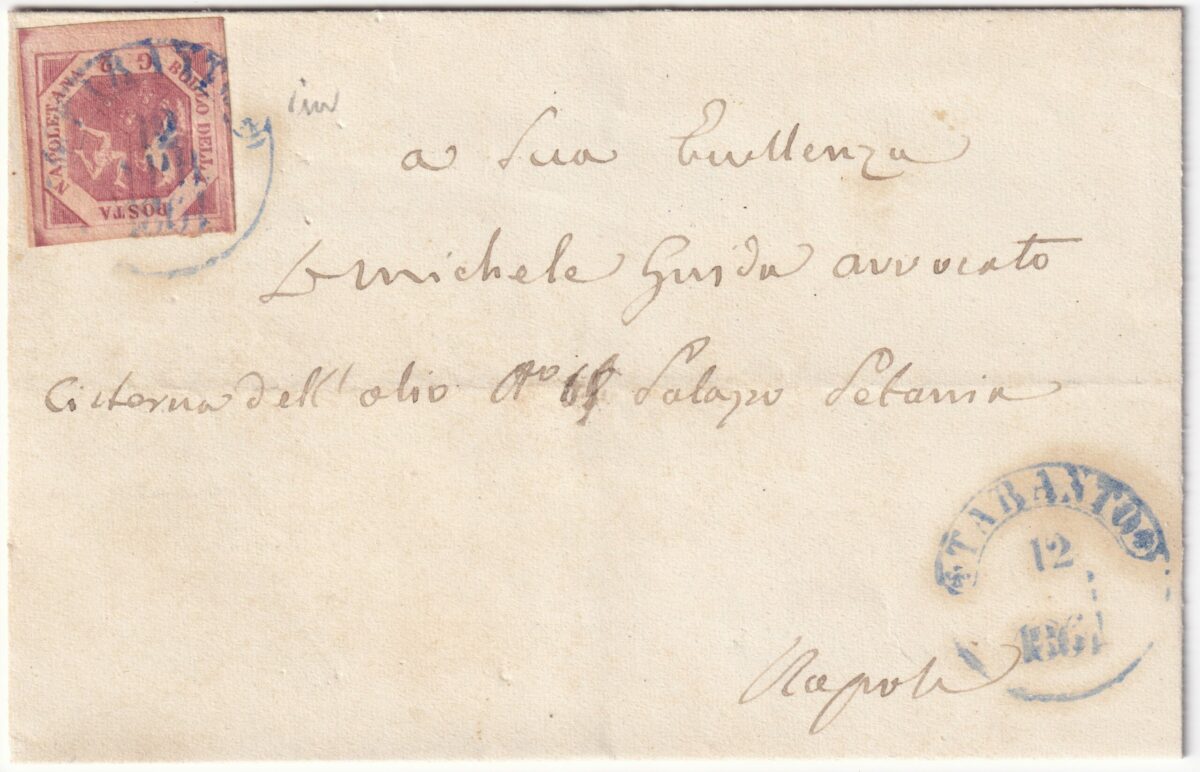 BOLLO DELLA
POSTA
NAPOLETANA
G 2
12
a Sua Eccellenza
D Michele Guida avvocato
Cisterna dell' olio No Palazo
TARANTO
12
1861
Napoli